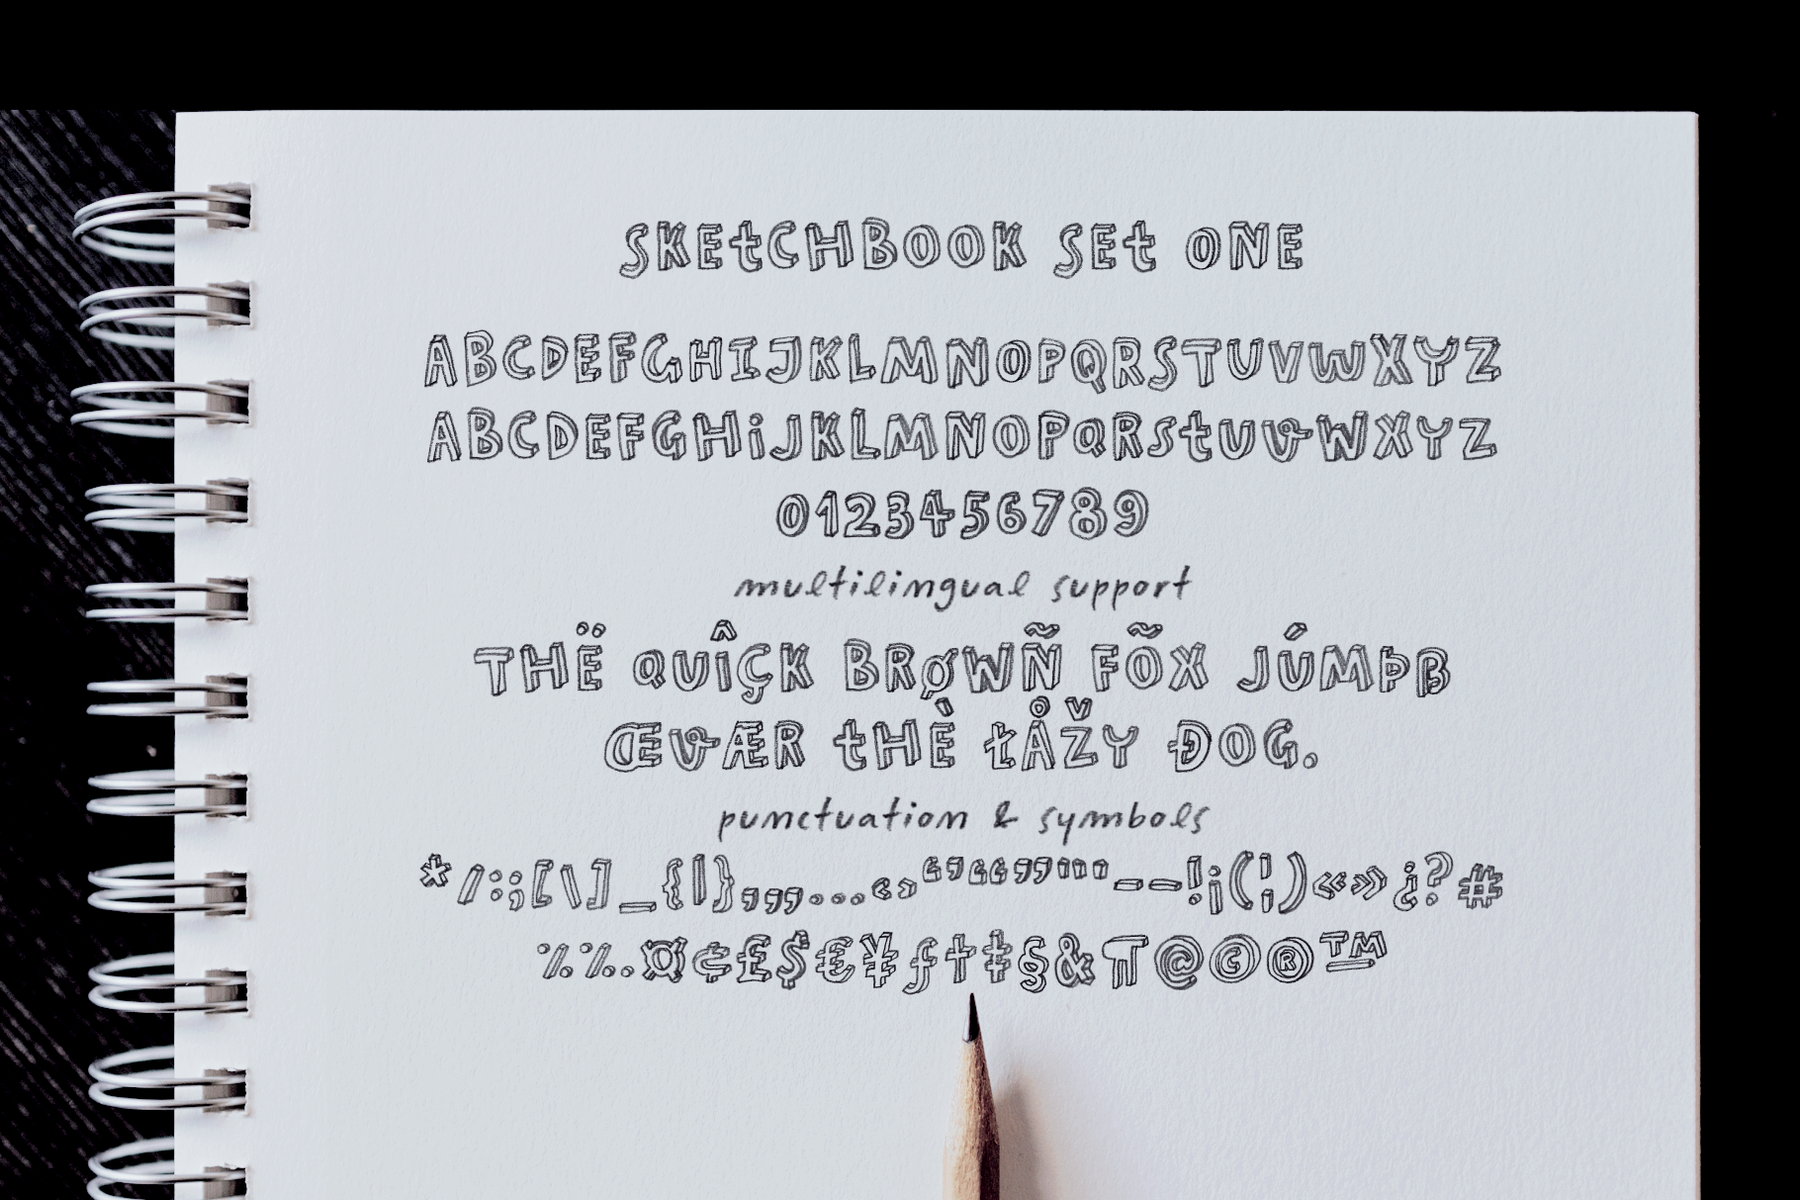 SKEtCHBOOK SEt ONE
ABCDEFGHIJKLMNOPQRSTUVWXYZ
ABCDEFGHiJKLMNOPQRStUVWXYZ
0123456789
multilingual support
THË QUÎÇK BRØWÑ FÕX JÚMÞß
ŒVÆR tHÈ ŁÅŽY ĐOG.
punctuation & symbols
*/:;[\]_{|}‚„,.…‹›‘’“”'"–—!¡(¦)«»¿?#
⁒٪..¤¢£$€¥ƒ†‡§&¶@©®™